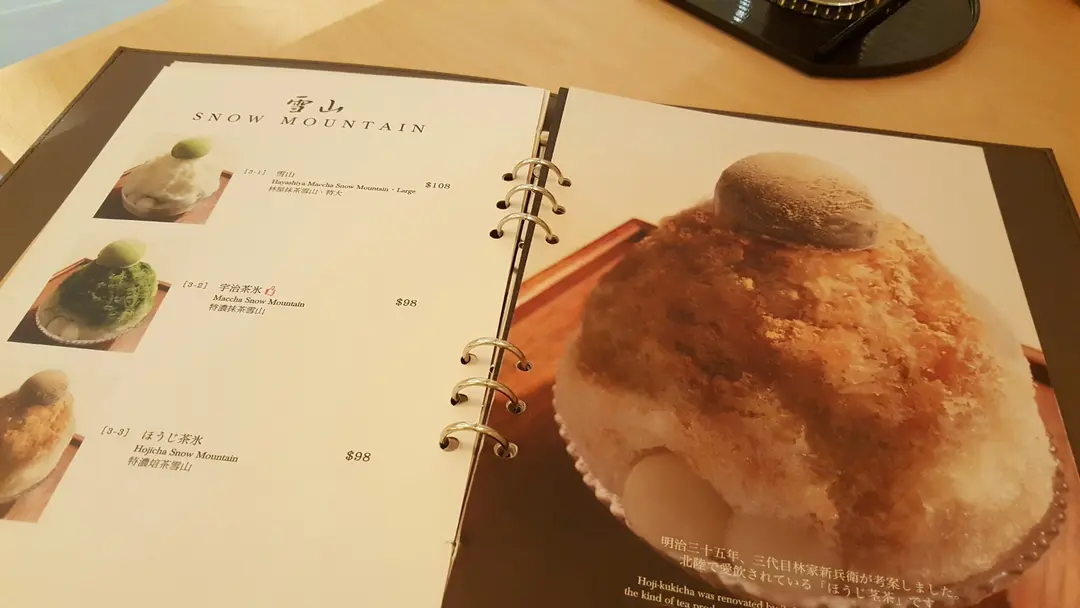 雪山
SNOW MOUNTAIN
[3-1] 雪山 $108
Hayashiya Maccha Snow Mountain · Large
林屋抹茶雪山 · 特大
[3-2] 宇治茶氷
Maccha Snow Mountain $98
特濃抹茶雪山
[3-3] ほうじ茶氷
Hojicha Snow Mountain $98
特濃焙茶雪山
明治三十五年、三代目林家新兵衛が考案しました。
北陸で愛飲されている「ほうじ茎茶」です
Hoji-kukicha was renovated by
the kind of tea